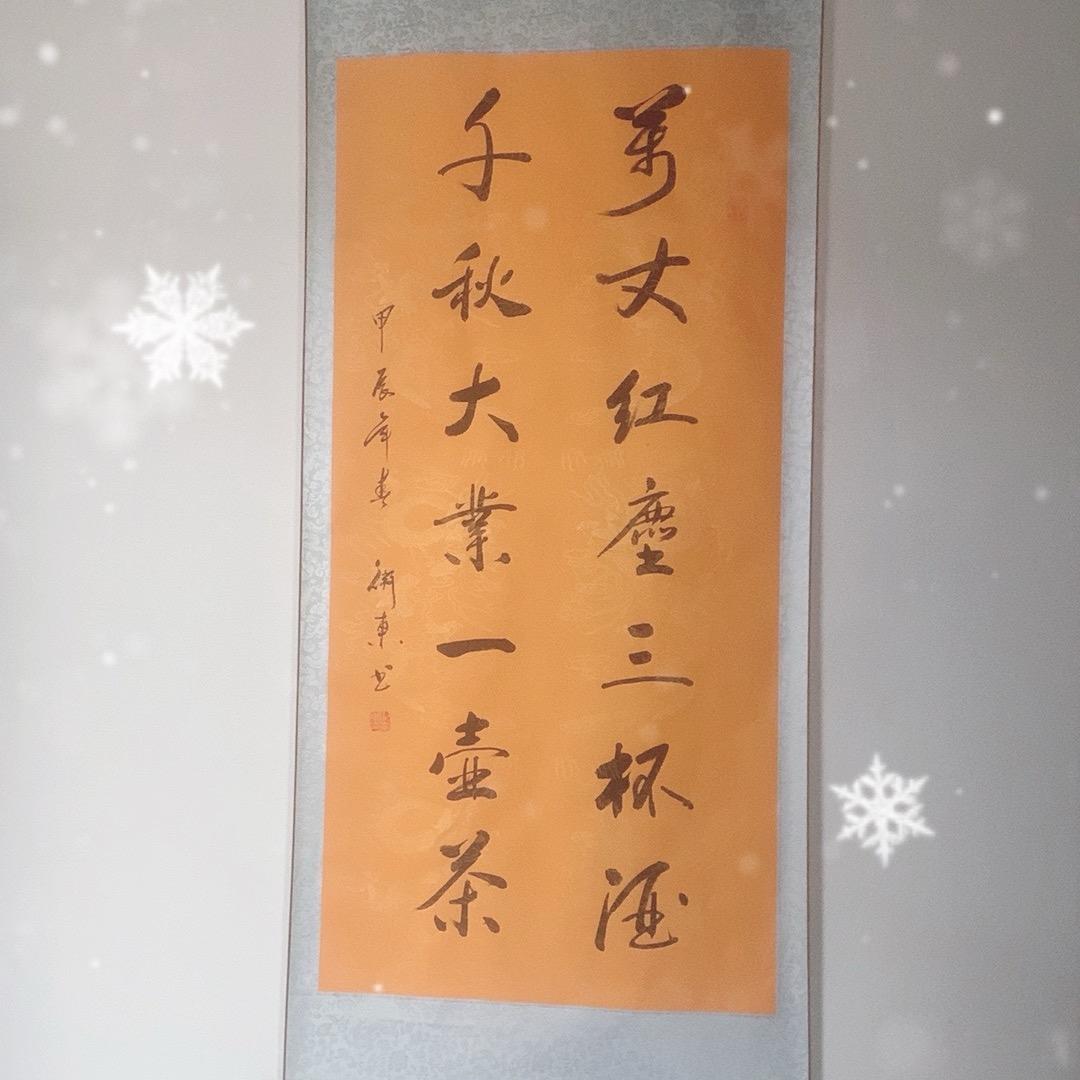 萬丈红塵三杯酒
千秋大業一壺茶
甲辰年春 衛東书